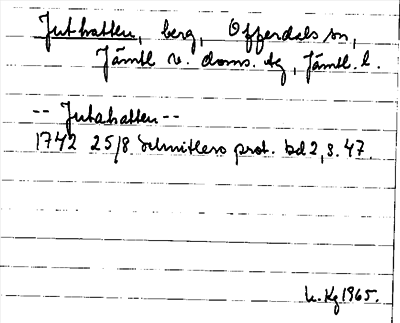 Juthatten, berg, Offerdals sn,
Jämtl. v. doms. tg, Jämtl. l.
-- Jutahatten --
1742 25/8 Schnitlers prot. bd 2, s. 47.
1965.